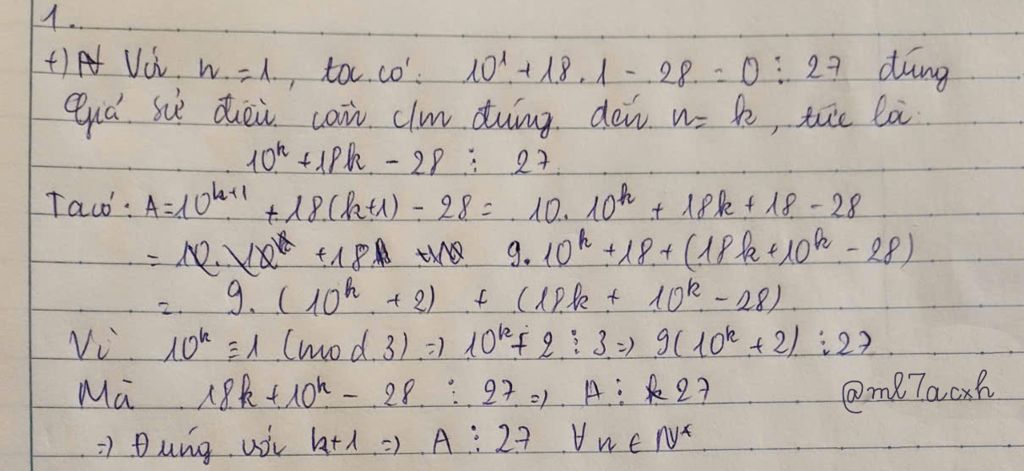 1.
+) Với n = 1, ta có: 10¹ + 18.1 - 28 = 0 ⋮ 27 đúng
Giả sử điều cần c/m đúng đến n = k, tức là:
10ᵏ + 18k - 28 ⋮ 27
Ta có: A = 10ᵏ⁺¹ + 18(k+1) - 28 = 10. 10ᵏ + 18k + 18 - 28
= 9. 10ᵏ + 18 + (18k + 10ᵏ - 28)
= 9. (10ᵏ + 2) + (18k + 10ᵏ - 28)
Vì 10ᵏ ≡ 1 (mod 3) => 10ᵏ + 2 ⋮ 3 => 9(10ᵏ + 2) ⋮ 27
Mà 18k + 10ᵏ - 28 ⋮ 27 => A ⋮ 27
@ml7acxh
=> Đúng với k+1 => A ⋮ 27 ∀ n ∈ N*